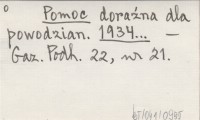 Pomoc doraźna dla
powodzian. 1934... —
Gaz. Podh. 22, nr 21.